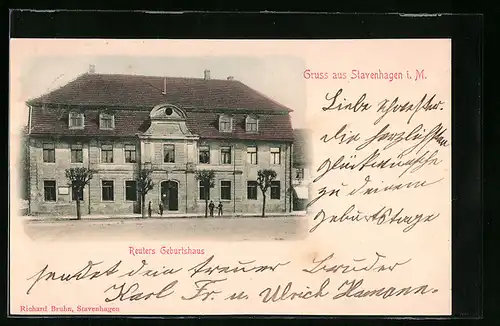 Gruss aus Stavenhagen i. M.
Liebe Schwester
die herzlichsten
Glückwünsche
zu deinem
Geburtstage
Reuters Geburtshaus
sendet dein treuer Bruder
Karl Fr. u. Ulrich Hamann.
Richard Bruhn, Stavenhagen